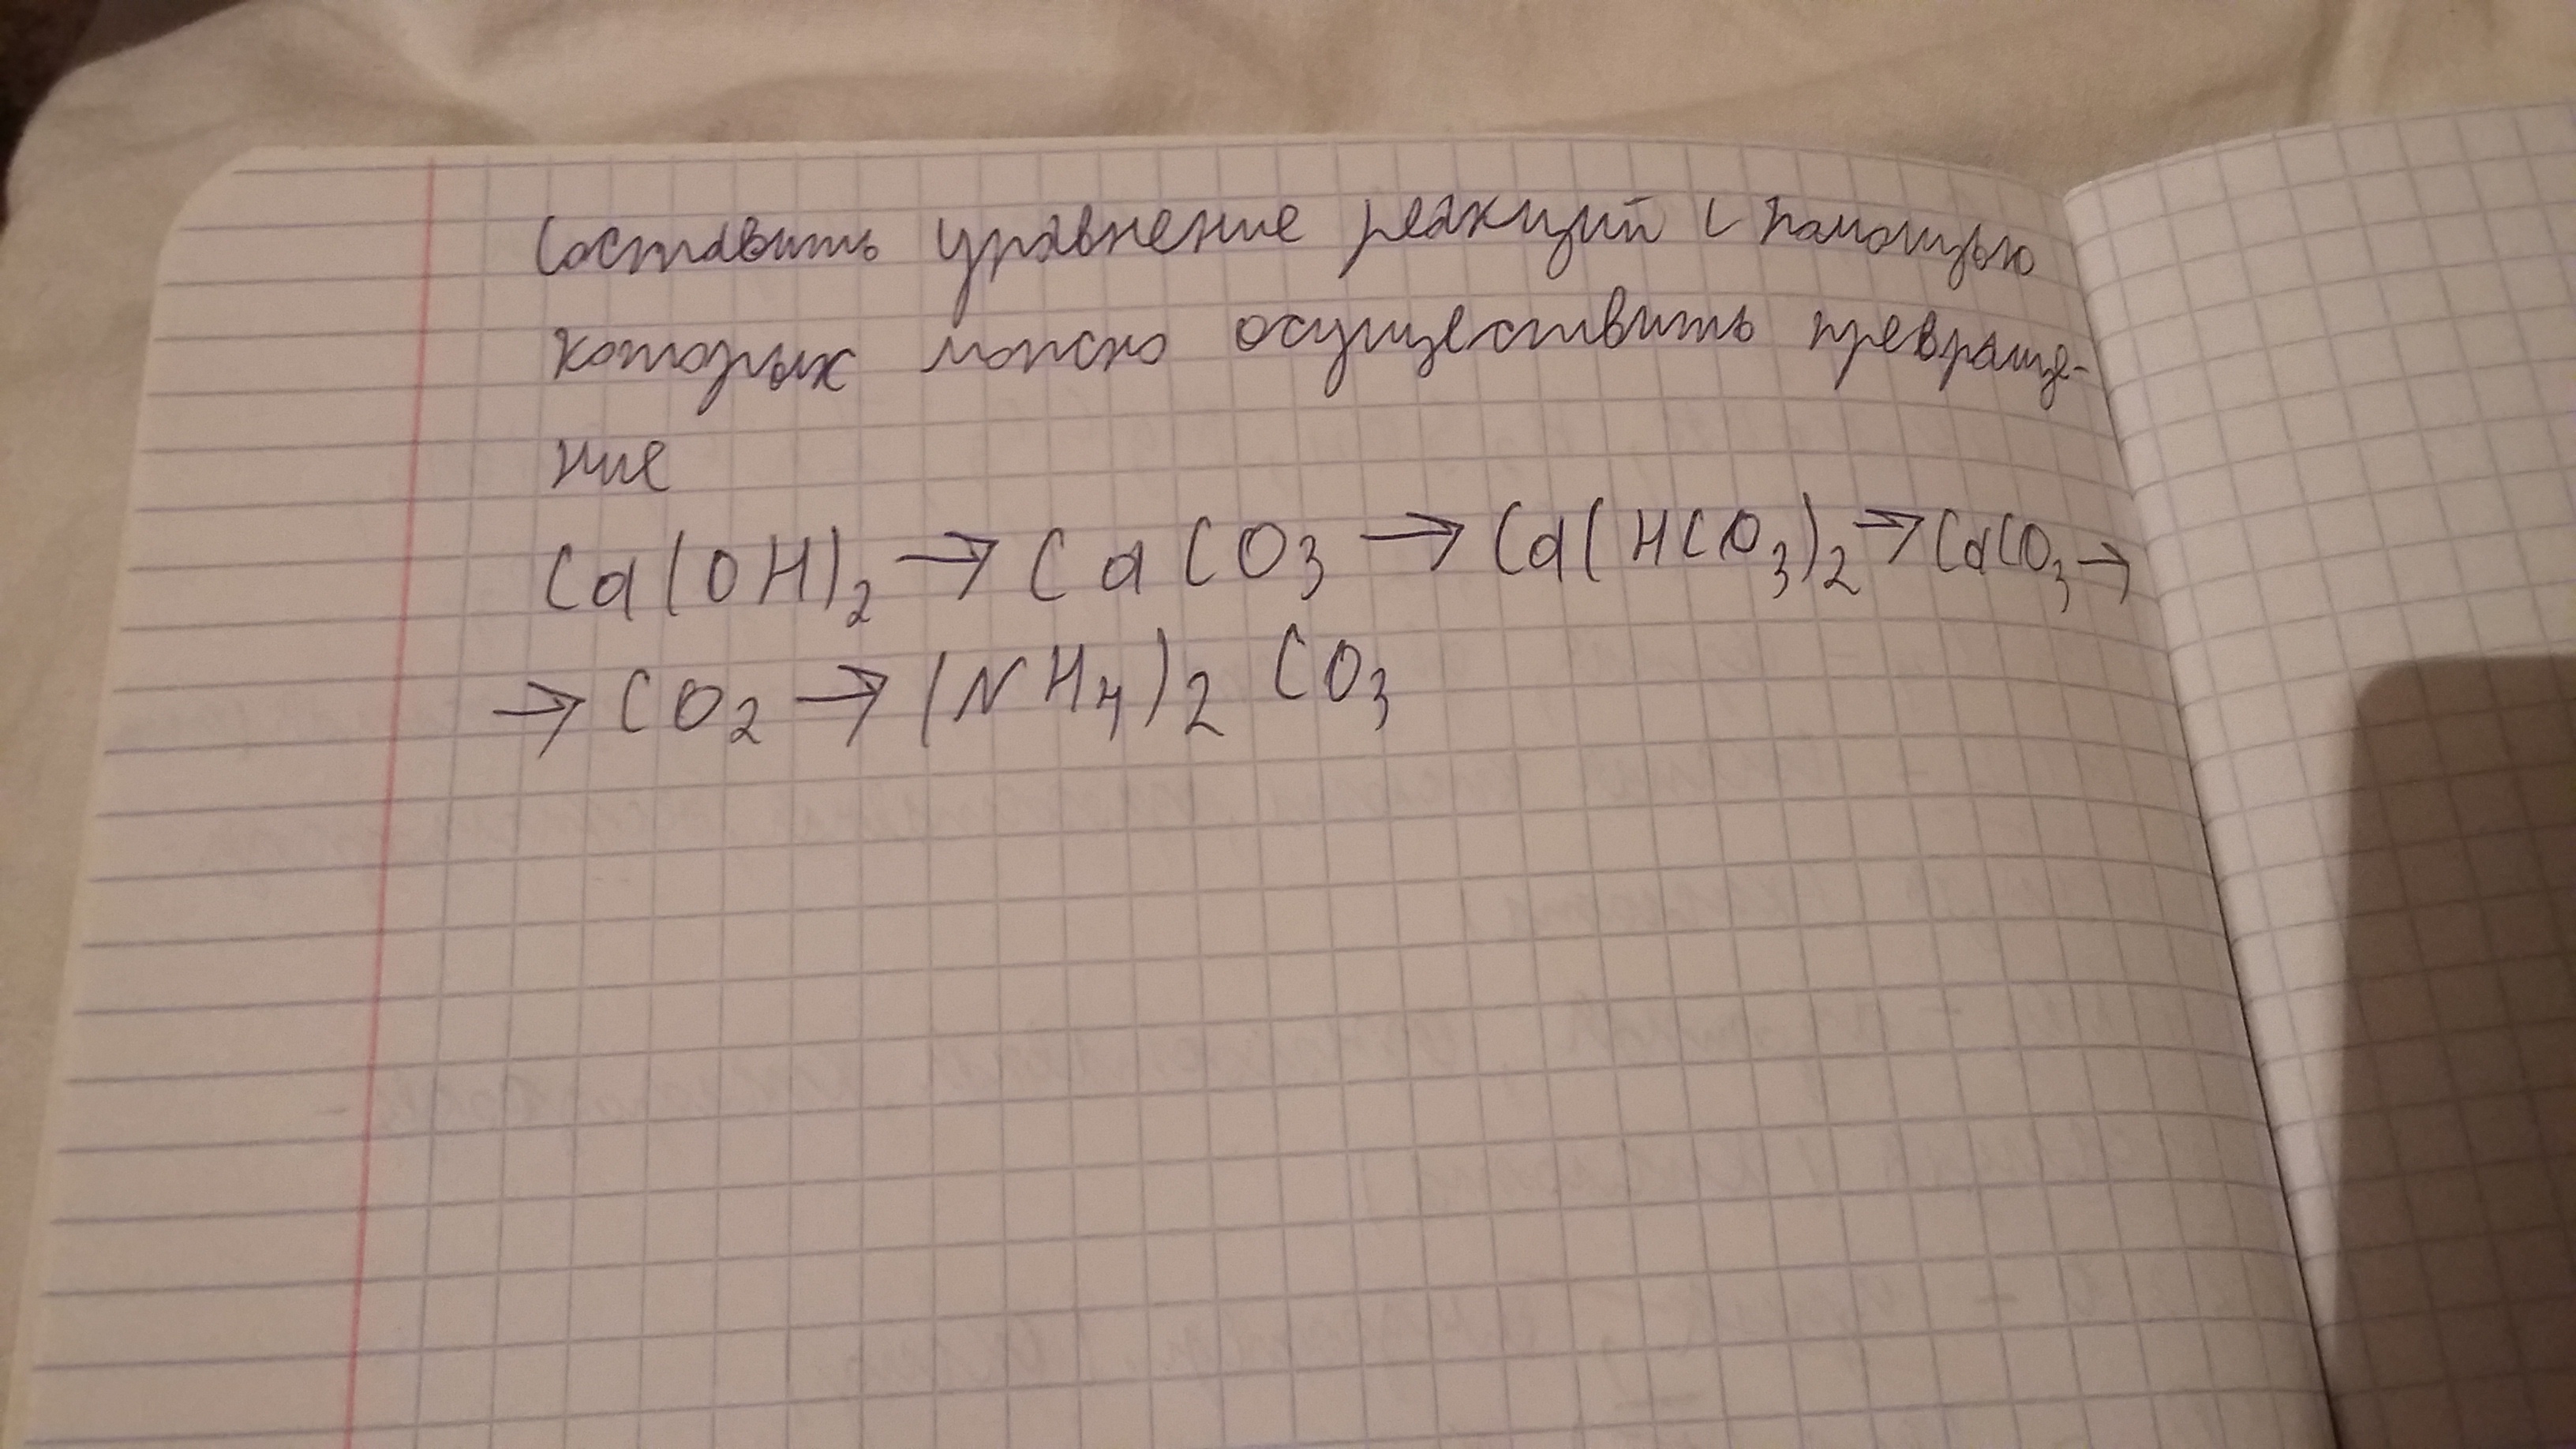 Составить уравнение реакций с помощью
которых можно осуществить превраще-
ние
Ca(OH)₂ → CaCO₃ → Ca(HCO₃)₂ → CaCO₃ →
→ CO₂ → (NH₄)₂CO₃